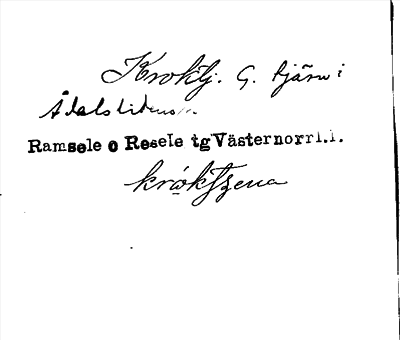 Kroktj. G. tjärn i
Ådalsliden
Ramsele o Resele tg Västernorrl.l.
krøktjzena